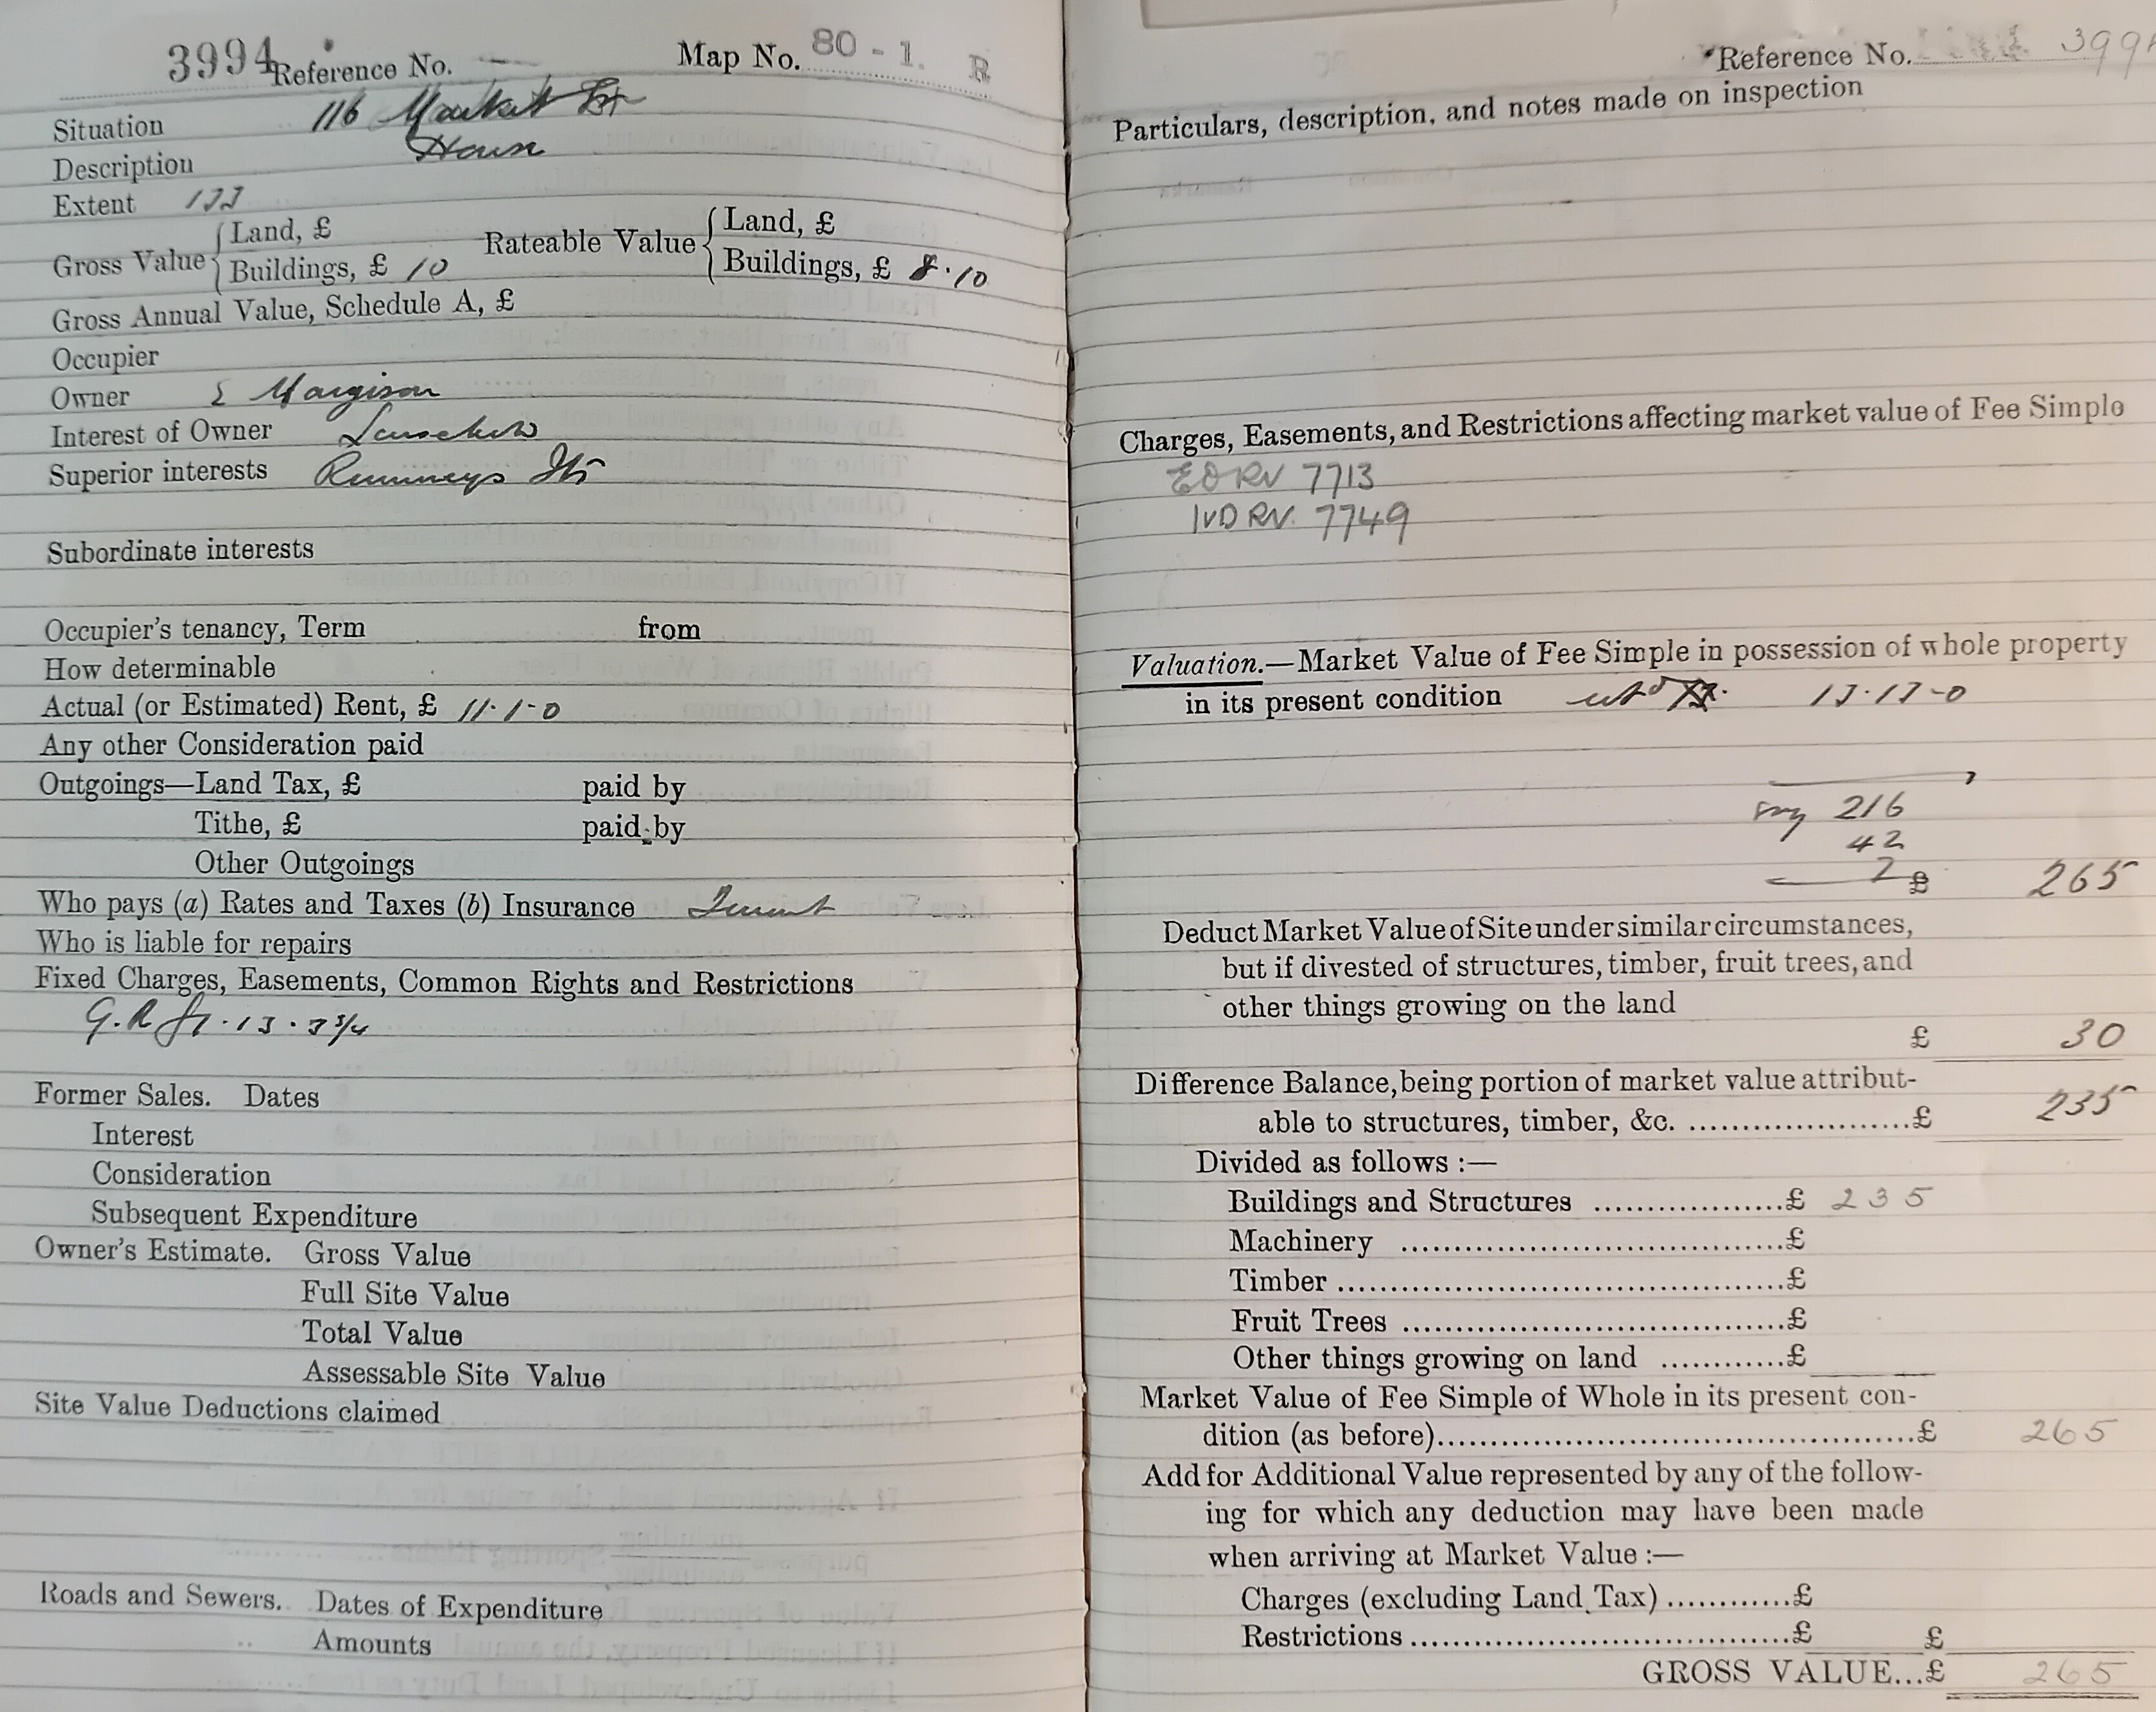 3994 Reference No. Map No. 80-1. R
Situation 116 Market St
Description House
Extent 133
Gross Value { Land, £
Buildings, £ 10
Rateable Value { Land, £
Buildings, £ 8.10
Gross Annual Value, Schedule A, £
Occupier
Owner E Margison
Interest of Owner Leasehold
Superior interests Rumneys Trs
Subordinate interests
Occupier's tenancy, Term from
How determinable
Actual (or Estimated) Rent, £ 11.1-0
Any other Consideration paid
Outgoings—Land Tax, £ paid by
Tithe, £ paid by
Other Outgoings
Who pays (a) Rates and Taxes (b) Insurance Tenant
Who is liable for repairs
Fixed Charges, Easements, Common Rights and Restrictions
G.R £1.13.3 3/4
Former Sales. Dates
Interest
Consideration
Subsequent Expenditure
Owner's Estimate. Gross Value
Full Site Value
Total Value
Assessable Site Value
Site Value Deductions claimed
Roads and Sewers. Dates of Expenditure
Amounts
Reference No. 3994
Particulars, description, and notes made on inspection
Charges, Easements, and Restrictions affecting market value of Fee Simple
EORV 7713
IVD RV. 7749
Valuation.—Market Value of Fee Simple in possession of whole property
in its present condition 13.17-0
say 216
42
7
£ 265
Deduct Market Value of Site under similar circumstances,
but if divested of structures, timber, fruit trees, and
other things growing on the land
£ 30
Difference Balance, being portion of market value attribut-
able to structures, timber, &c. ......................£ 235
Divided as follows :—
Buildings and Structures ...................£ 235
Machinery ......................................£
Timber ............................................£
Fruit Trees ......................................£
Other things growing on land ............£
Market Value of Fee Simple of Whole in its present con-
dition (as before)................................................£ 265
Add for Additional Value represented by any of the follow-
ing for which any deduction may have been made
when arriving at Market Value :—
Charges (excluding Land Tax) ............£
Restrictions ......................................£ £
GROSS VALUE...£ 265